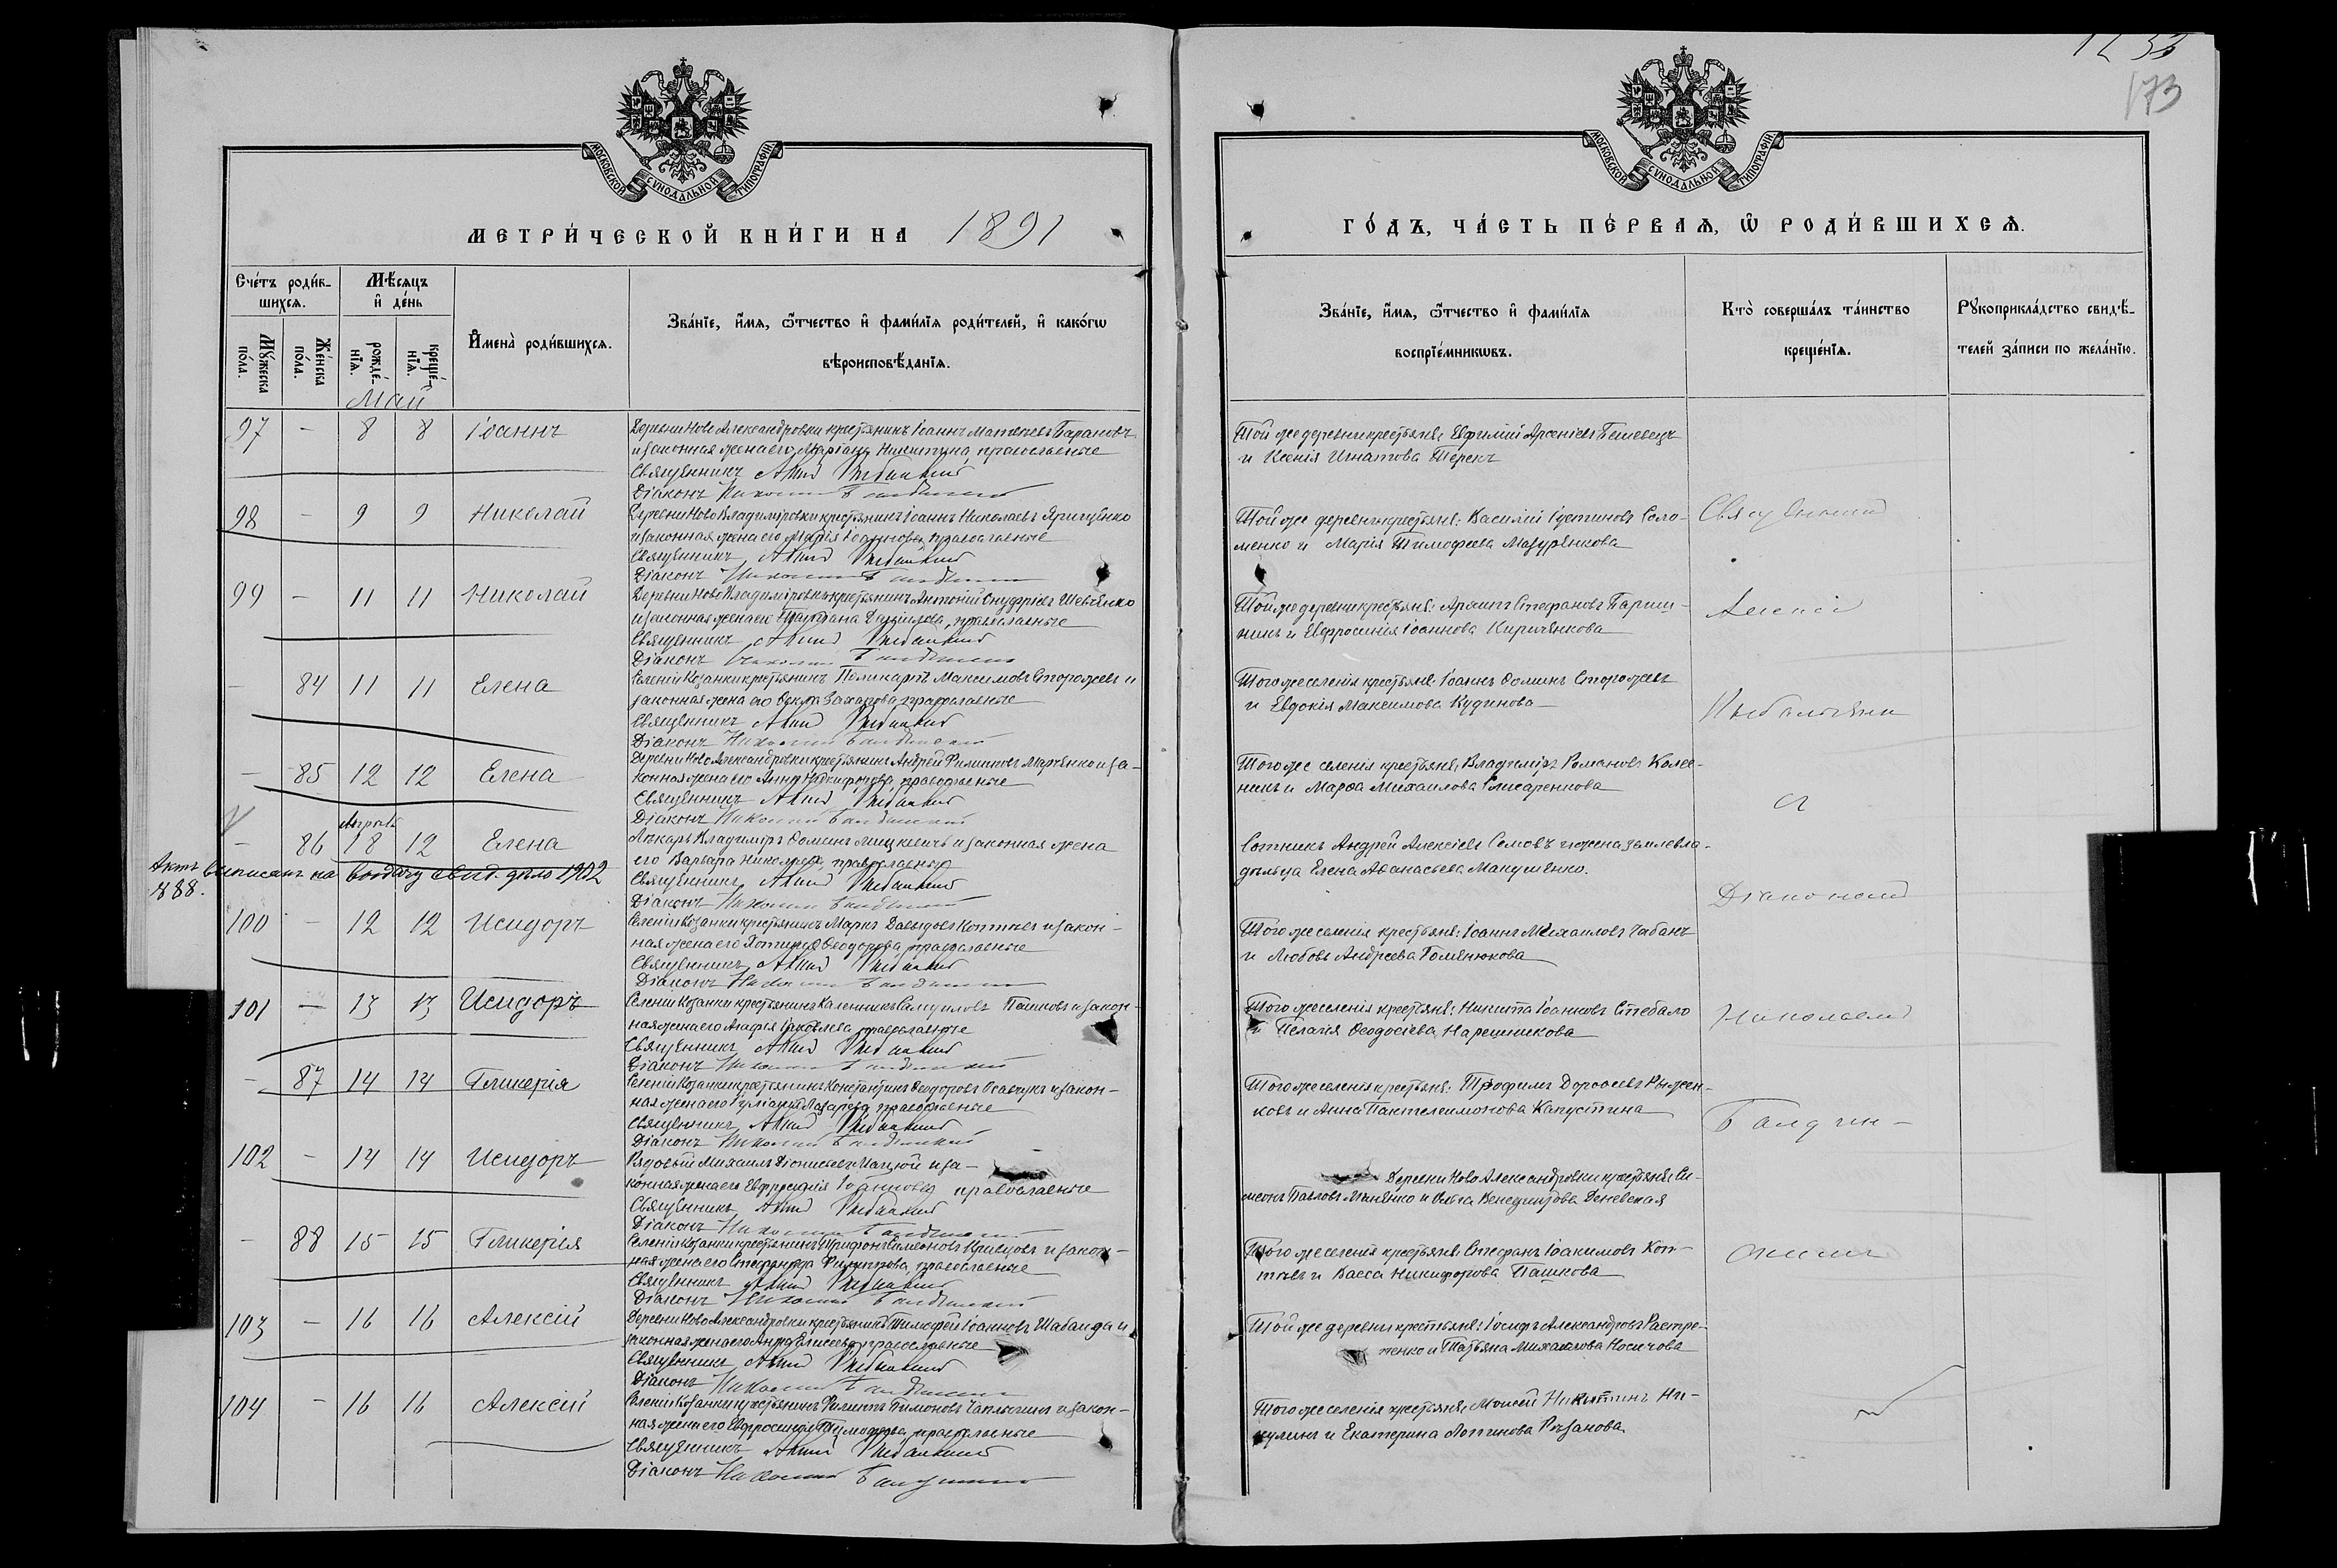 МОСКОВСКОЙ СѴНОДАЛЬНОЙ ТИПОГРАФІИ
МЕТРИ́ЧЕСКОЙ КНИ́ГИ НА 1891
Сче́тъ роди́в-
шихсѧ.
Мꙋ́жеска по́ла.
Же́нска по́ла.
Мѣ́сѧцъ
и҆ де́нь
рожде́-
нїѧ.
креще́-
нїѧ.
И҆мена̀ роди́вшихсѧ.
Зва́нїе, и҆́мѧ, ѻ҆́тчество и҆ фами́лїѧ роди́телей, и҆ како́гѡ
вѣроисповѣ́данїѧ.
Май
97 - 8 8 Іоаннъ
Деревни Ново Александровки крестьянинъ Іоаннъ Матвѣевъ Барановъ
и законная жена его Маріана Никитина, православные
Священникъ
Діаконъ Николай
98 - 9 9 Николай
Деревни Ново Владиміровки крестьянинъ Іоаннъ Николаевъ Ярищенко
и законная жена его Марія Іоаннова, православные
Священникъ
Діаконъ Николай
99 - 11 11 Николай
Деревни Ново Владиміровки крестьянинъ Антоній Онуфріевъ Шевченко
и законная жена его Татіана Данилова, православные
Священникъ
Діаконъ Николай
- 84 11 11 Елена
Селенія Козанки крестьянинъ Поликарпъ Максимовъ Сторожевъ и
законная жена его Ѳекла Захарова, православные
Священникъ
Діаконъ Николай
- 85 12 12 Елена
Деревни Ново Александровки крестьянинъ Андрей Филиповъ Марченко и за-
конная жена его Анна Никифорова, православные
Священникъ
Діаконъ Николай
Апрѣль
- 86 18 12 Елена
Лѣкарь Владиміръ Ѳоминъ Мицкевичъ и законная жена
его Варвара Николаева, православные
Актъ выписанъ на выдачу свид. дѣло 1902
№ 88.
Священникъ
Діаконъ Николай
100 - 12 12 Исидоръ
Селенія Козанки крестьянинъ Маркъ Давыдовъ Коптевъ и закон-
ная жена его Фотинія Ѳеодорова, православные
Священникъ
Діаконъ Николай
101 - 13 13 Исидоръ
Селенія Козанки крестьянинъ Каленникъ Самуиловъ Пашковъ и закон-
ная жена его Агафія Яковлева, православные
Священникъ
Діаконъ Николай
- 87 14 14 Гликерія
Селенія Козанки крестьянинъ Константинъ Ѳеодоровъ Осавчукъ и закон-
ная жена его Іуліанія Лазарева, православные
Священникъ
Діаконъ Николай
102 - 14 14 Исидоръ
Рядовый Михаилъ Діонисьевъ и за-
конная жена его Евфросинія Іоаннова православные
Священникъ
Діаконъ Николай
- 88 15 15 Гликерія
Селенія Козанки крестьянинъ Трифонъ Симеоновъ Кривцовъ и закон-
ная жена его Стефанида Филиппова, православные
Священникъ
Діаконъ Николай
103 - 16 16 Алексій
Деревни Ново Александровки крестьянинъ Тимофей Іоанновъ Шабалда и
законная жена его Анна Елисеева, православные
Священникъ
Діаконъ Николай
104 - 16 16 Алексій
Селенія Козанки крестьянинъ Филиппъ Тимоновъ Чаплыгинъ и закон-
ная жена его Евфросинія, православные
Священникъ
Діаконъ Николай
173
МОСКОВСКОЙ СѴНОДАЛЬНОЙ ТИПОГРАФІИ
ГО́ДЪ, ЧА́СТЬ ПЕ́РВАѦ, Ѡ҆ РОДИ́ВШИХСѦ.
Зва́нїе, и҆́мѧ, ѻ҆́тчество и҆ фами́лїѧ
воспрїе́мникѡвъ.
Кто̀ соверша́лъ та́инство
креще́нїѧ.
Рꙋкоприкла́дство свидѣ́-
телей за́писи по жела́нїю.
Той же деревни крестьяне: Евфимій Арсеніевъ Бешевецъ
и Ксенія Игнатова Терекъ
Той же деревни крестьяне: Василій Іустиновъ Соло-
менко и Марія Тимофеева Мазуренкова
Той же деревни крестьяне: Архипъ Стефановъ Париш-
никъ и Евфросинія Іоаннова Кириченкова
Того же селенія крестьяне: Іоаннъ Ѳоминъ Сторожевъ
и Евдокія Максимова Кудинова
Того же селенія крестьяне: Владиміръ Романовъ Колес-
никъ и Марѳа Михаилова Слисаренкова
Сотникъ Андрей Алексіевъ Семовъ и жена землевла-
дѣльца Елена Аѳанасьева Макушенко.
Того же селенія крестьяне: Іоаннъ Михаиловъ Чабанъ
и Любовь Андреева Гоменюкова
Того же селенія крестьяне: Никита Іоанновъ Стебало
и Пелагія Ѳеодосіева Нарешникова
Того же селенія крестьяне: Трофимъ Дороѳеевъ Рыжен-
ковъ и Анна Пантелеимонова Капустина
Деревни Ново Александровки крестьяне: Си-
меонъ Павловъ Миненко и Ольга Венедиктова Деневская
Того же селенія крестьяне: Стефанъ Іоакимовъ Коп-
тевъ и Васса Никифорова Пашкова
Той же деревни крестьяне: Іосифъ Александровъ Растре-
пенко и Татьяна Михаилова Носачова
Того же селенія крестьяне: Моисей Никитинъ Ни-
кулинъ и Екатерина Логинова Рѣзанова
Священникъ
Алексій
съ
Діакономъ
Николаемъ
Балдин-
скимъ